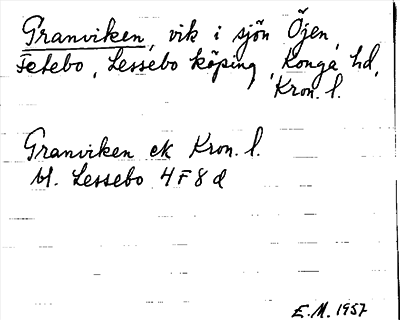 Granviken, vik i sjön Öjen,
Fetebo, Lessebo köping, Konga hd,
Kron. l.
Granviken ek Kron. l.
bl. Lessebo 4F8d
E.M. 1957